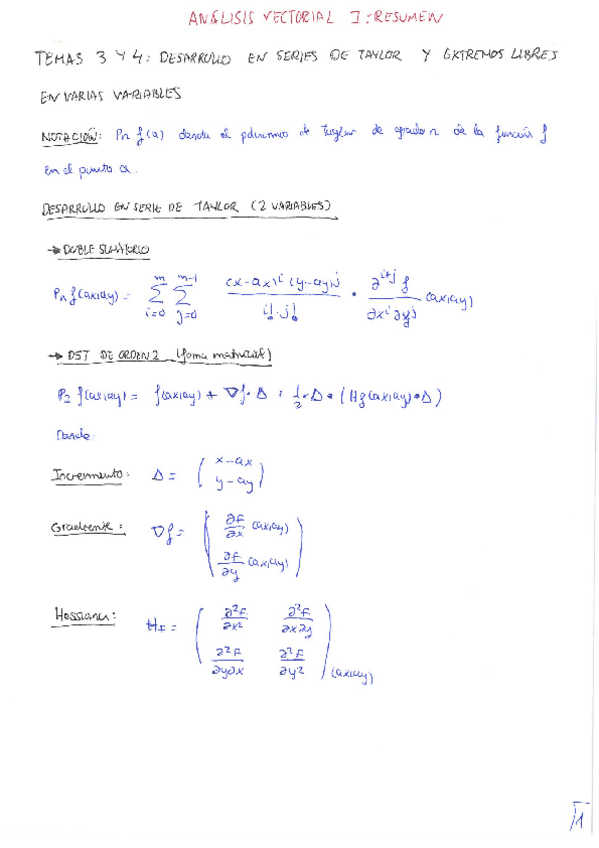 ANÁLISIS VECTORIAL I: RESUMEN
TEMAS 3 Y 4: DESARROLLO EN SERIES DE TAYLOR Y EXTREMOS LIBRES
EN VARIAS VARIABLES
NOTACIÓN: Pn f(a) denota el polinomio de Taylor de grado n de la función f
en el punto a.
DESARROLLO EN SERIE DE TAYLOR (2 VARIABLES)
→ DOBLE SUMATORIO
Pn f(ax,ay) = ∑_{i=0}^{m} ∑_{j=0}^{m-1} (x-ax)^i (y-ay)^j / i! · j! · ∂^{i+j} f / ∂x^i ∂y^j (ax,ay)
→ DST DE ORDEN 2 (forma matricial)
P2 f(ax,ay) = f(ax,ay) + ∇f · Δ + 1/2 · Δ · (Hf(ax,ay) · Δ)
Donde:
Incremento: Δ = ( x-ax
y-ay )
Gradiente: ∇f = ( ∂F/∂x (ax,ay)
∂F/∂y (ax,ay) )
Hessiana: HF = ( ∂²F/∂x² ∂²F/∂x∂y
∂²F/∂y∂x ∂²F/∂y² ) (ax,ay)
1